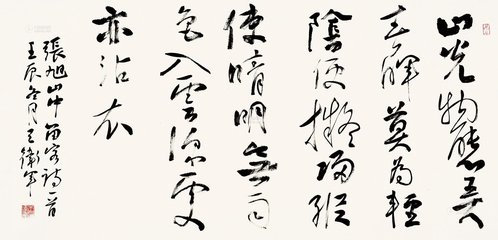 山光物態弄
春暉莫為輕
陰便擬歸縱
使晴明無雨
色入雲深處
亦沾衣
張旭山中留客詩一首
壬辰冬月王衛軍